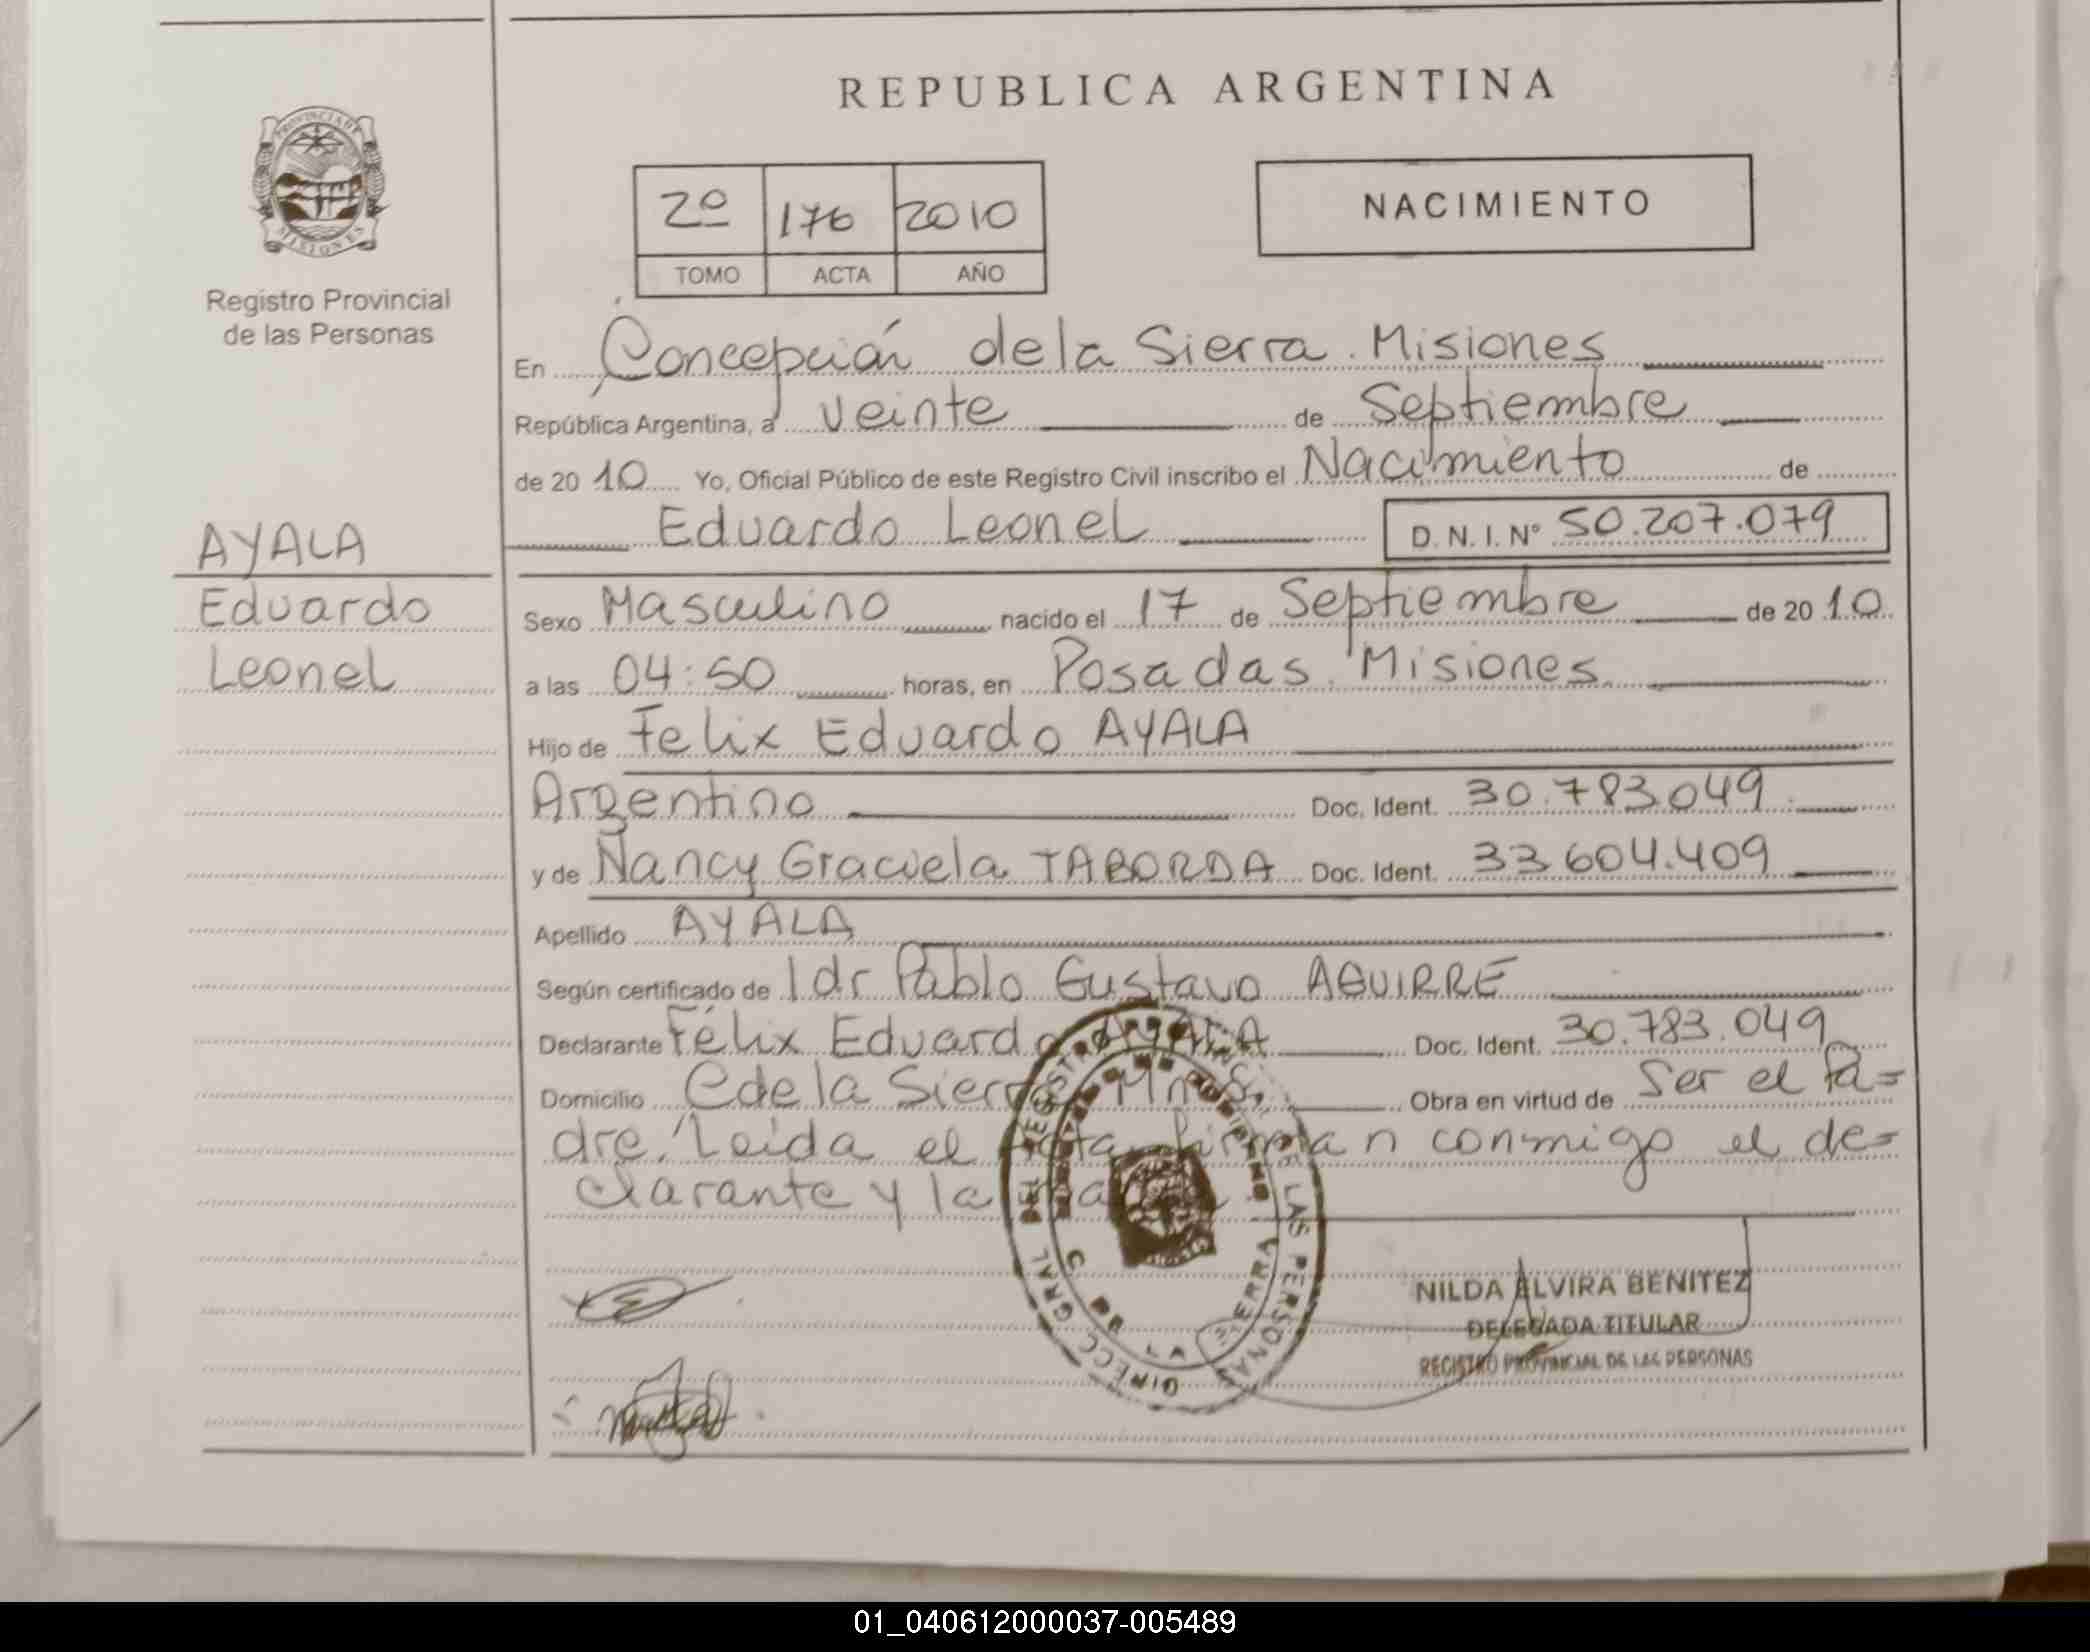 REPUBLICA ARGENTINA
PROVINCIA DE
MISIONES
Registro Provincial
de las Personas
2º 176 2010
TOMO ACTA AÑO
NACIMIENTO
En Concepción de la Sierra. Misiones
República Argentina, a veinte de Septiembre
de 20 10 Yo, Oficial Público de este Registro Civil inscribo el Nacimiento de
Eduardo Leonel D.N.I. Nº 50.207.079
AYALA
Eduardo
Leonel
Sexo Masculino nacido el 17 de Septiembre de 20 10
a las 04:50 horas, en Posadas. Misiones
Hijo de Felix Eduardo AYALA
Argentino Doc. Ident. 30.783.049
y de Nancy Graciela TABORDA Doc. Ident. 33.604.409
Apellido AYALA
Según certificado de l dr Pablo Gustavo AGUIRRE
Declarante Félix Eduardo AYALA Doc. Ident. 30.783.049
Domicilio C de la Sierra Mnes. Obra en virtud de Ser el Pa=
dre. Leída el acta firman conmigo el de=
clarante y la
DIRECC GRAL DEL REGISTRO DE LAS PERSONAS
C DE LA SIERRA
NILDA ELVIRA BENITEZ
DELEGADA TITULAR
REGISTRO PROVINCIAL DE LAS PERSONAS
01_040612000037-005489